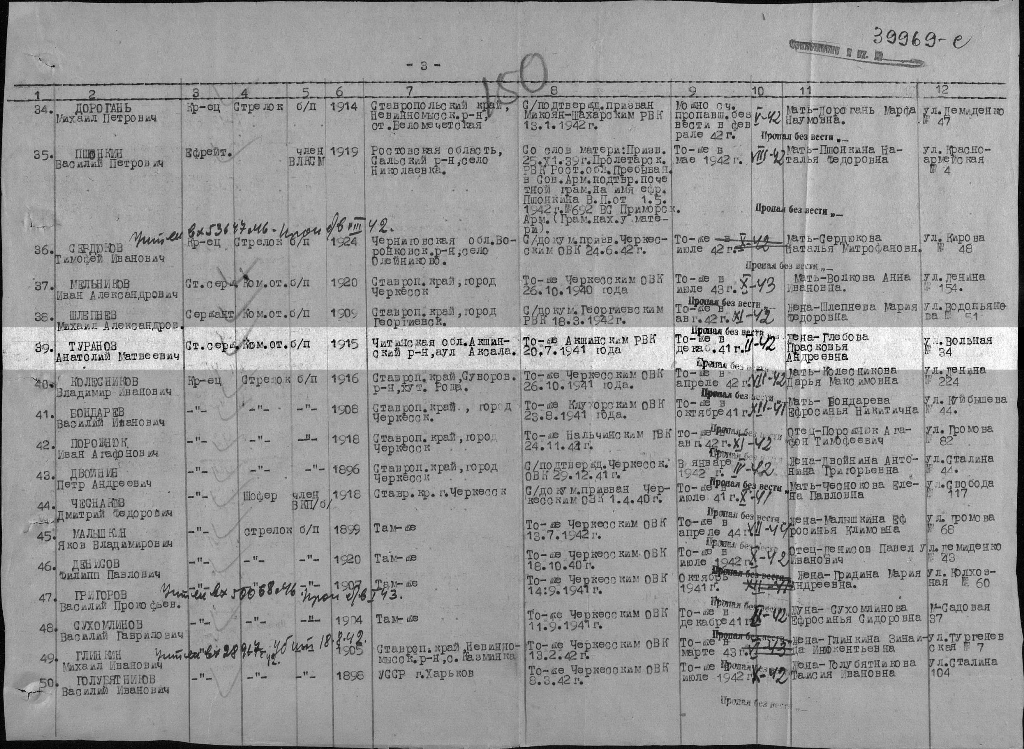 39969-с
- 3 -
150
1. 2 3 4 5 6 7 8 9 10 11 12
34. ДОРОГАНЬ Кр-ец Стрелок б/п 1914 Ставропольский край, С/подтвержд.призван Можно сч. V-42 Мать-Дорогань Марфа ул.Демиденко
Михаил Петрович Невинномысск.р-н, Микоян-Шахарским РВК пропавш.без Наумовна. № 47
ст.Беломечетская 13.1.1942г. вести в фев
рале 42г. Пропал без вести
35. ПШОНКИН Ефрейт. член 1919 Ростовская область, Со слов матери:Призв. То-же в VIII-42 Мать-Пшонкина На- ул.Красно-
Василий Петрович ВЛКСМ Сальский р-н,село 25.XI.39г.Пролетарск. мае 1942г. талья Федоровна армейская
Николаевка. РВК Рост.обл.Пребывал № 4
в Сов.Арм.подтвр.поче
тной грам.на имя ефр.
Пшонкина В.П.от 1.5.
1942г.№692 ВС Приморск. Пропал без вести
Арм.(Грам.нах.у мате-
ри).
36. СЕРДЮКОВ Кр-ец Стрелок б/п 1924 Черниговская обл.Во- С/докум.призв.Черкес- То-же в X-42 Мать-Сердюкова ул.Кирова
Тимофей Иванович ронковск.р-н,село ским ОВК 24.6.42г. июле 42г. Наталья Митрофановн. № 48
Олейниково. Пропал без вести
37. МЕЛЬНИКОВ Ст.серж. Ком.от. б/п 1920 Ставроп.край,город То-же Черкесским ОВК То-же в X-43 Мать-Волкова Анна ул.Ленина
Иван Александрович Черкесск 26.10.1940 года июле 43г. Ивановна. № 154.
Пропал без вести
38. ШЛЕПНЕВ Сержант Ком.от. б/п 1909 Ставроп.край,город С/докум.Георгиевским То-же в XI-42 Жена-Шлепнева Мария ул.Водопьяно
Михаил Александров. Георгиевск. РВК 18.3.1942г. авг.42г. Федоровна № 51
Пропал без вести
39. ТУРАНОВ Ст.серж. Ком.от. б/п 1915 Читинская обл.Акшин- То-же Акшинским РВК То-же в II-42 Жена-Глебова ул.Вольная
Анатолий Матвеевич ский р-н,аул Аксала. 20.7.1941 года декаб.41г. Прасковья № 34
Андреевна
Пропал без вести
40. КОЛЕСНИКОВ Кр-ец Стрелок б/п 1916 Ставроп.край,Суворов. То-же Черкесским ОВК То-же в VII-42 Мать-Колесникова ул.Ленина
Владимир Иванович р-н,хут. Роща. 26.10.1941 года. апреле 42г. Дарья Максимовна № 224
Пропал без вести
41. БОНДАРЕВ -"- -"- -"- 1908 Ставроп.край., город То-же Клухорским ОВК То-же в XII-41 Мать- Бондарева ул.Куйбышева
Василий Иванович Черкесск. 23.8.1941 года. октябре41г. Ефросинья Никитична № 44.
Пропал без вести
42. ПОРОЖНЮК -"- -"- -"- 1918 Ставроп.край,город То-же Нальчинским ГВК То-же в XI-42 Отец-Порожнюк Ага- ул.Громова
Иван Агафонович Черкесск 24.11.42г. авг.42г. фон Тимофеевич № 82
Пропал без вести
43. ДВОЙНИН -"- -"- -"- 1896 Ставроп.край,город С/подтвержд.Черкесск. В январе IV-42 Жена-Двойнина Анто- ул.Сталина
Петр Андреевич Черкесск ОВК 29.12.41г. 1942 г. нина Григорьевна № 44.
Пропал без вести
44. ЧЕСНОКОВ -"- Шофер член 1918 Ставр.кр.г.Черкесск С/докум.призван Чер- То-же в X-41 Мать-Чеснокова Еле- ул.Свобода
Дмитрий Федорович ВКП/б/ кесским ОВК 1.4.40г. июле 41г. на Павловна 117
Пропал без вести
45. МАЛЫШКИН -"- стрелок б/п 1899 Там-же То-же Черкесским ОВК То-же в VII-44 Жена-Малышкина Еф ул.Громова
Яков Владимирович 13.7.1942г. апреле 44г. росинья Климовна № 68
Пропал без вести
46. ДЕНИСОВ -"- -"- -"- 1920 Там-же То-же Черкесским ОВК То-же в X-42 Отец-Денисов Павел ул.Демиденко
Филипп Павлович 18.10.40г. июле 1942г. Иванович № 23
Пропал без вести
47. ГРИГОРОВ -"- -"- 1907 Там-же То-же Черкесским ОВК Октябрь XII-41 Жена-Гридина Мария ул.Колхоз-
Василий Прокофьев. 14.9.1941г. 1941г. Андреевна. ная № 60
48. СУХОМЛИНОВ -"- -"- -"- 1904 Там-же То-же Черкесским ОВК То-же в Жена- Сухомлинова М-Садовая
Василий Гаврилович 11.9.1941г. декабре41г Ефросинья Сидоровна 37
Пропал без вести
49. ГЛИНКИН 1905 Ставроп.край,Невинно- То-же Черкесским ОВК То-же в Жена-Глинкина Зинаи- ул.Тургенев
Михаил Иванович мысск.р-н,с.Казминка 13.2.42г. марте 43г. да Инокентьевна ская № 7
50. ГОЛУБЯТНИКОВ -"- -"- -"- 1898 УССР г.Харьков То-же Черкесским ОВК То-же в X-42 Жена-Голубятникова ул.Сталина
Василий Иванович 8.3.42г. июле 1942г. Таисия Ивановна 104
Пропал без вести